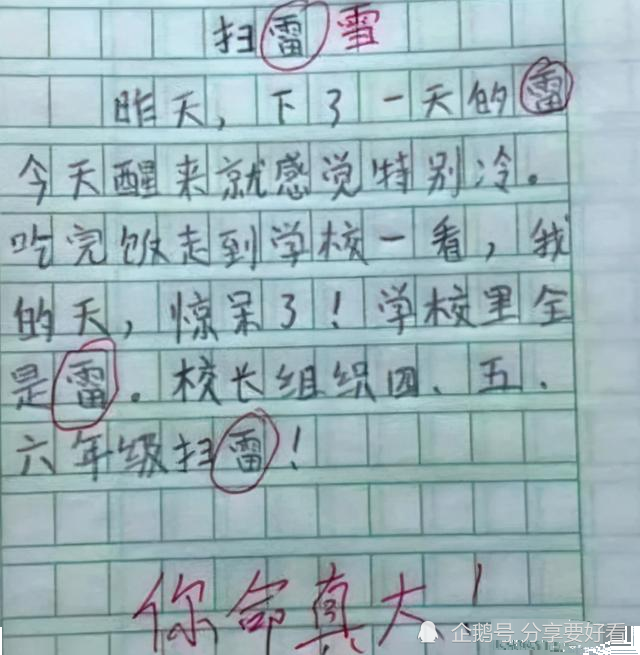 扫雷雪
昨天，下了一天的雷
今天醒来就感觉特别冷。
吃完饭走到学校一看，我
的天，惊呆了！学校里全
是雷。校长组织四、五、
六年级扫雷！
你命真大！
企鹅号 分享要好看